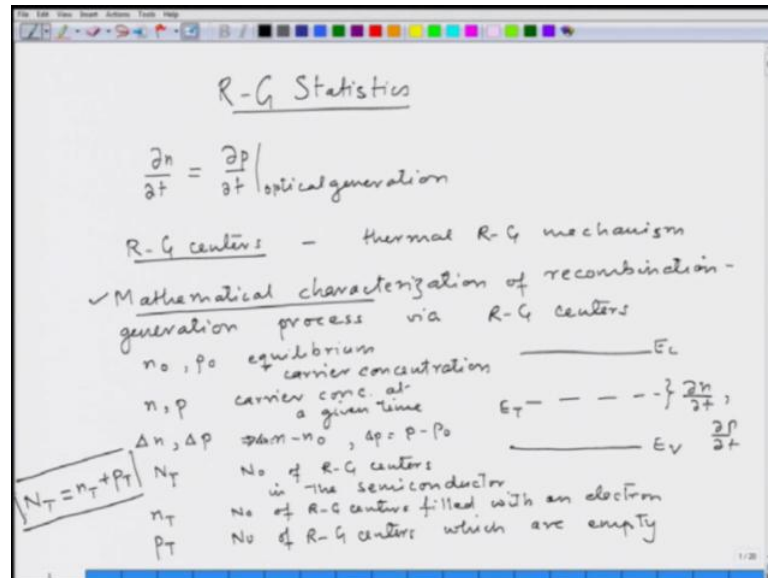 File Edit View Insert Actions Tools Help
R-G Statistics
∂n/∂t = ∂p/∂t | optical generation
R-G centers - thermal R-G mechanism
✓ Mathematical characterization of recombination-
generation process via R-G centers
n₀, p₀ equilibrium carrier concentration
n, p carrier conc. at a given time
Δn, Δp ⇒ Δn-n₀, Δp = p-p₀
N_T No of R-G centers in the semiconductor
n_T No of R-G centers filled with an electron
p_T No of R-G centers which are empty
N_T = n_T + p_T
E_c
E_T - - - - } ∂n/∂t, ∂p/∂t
E_v
1/20